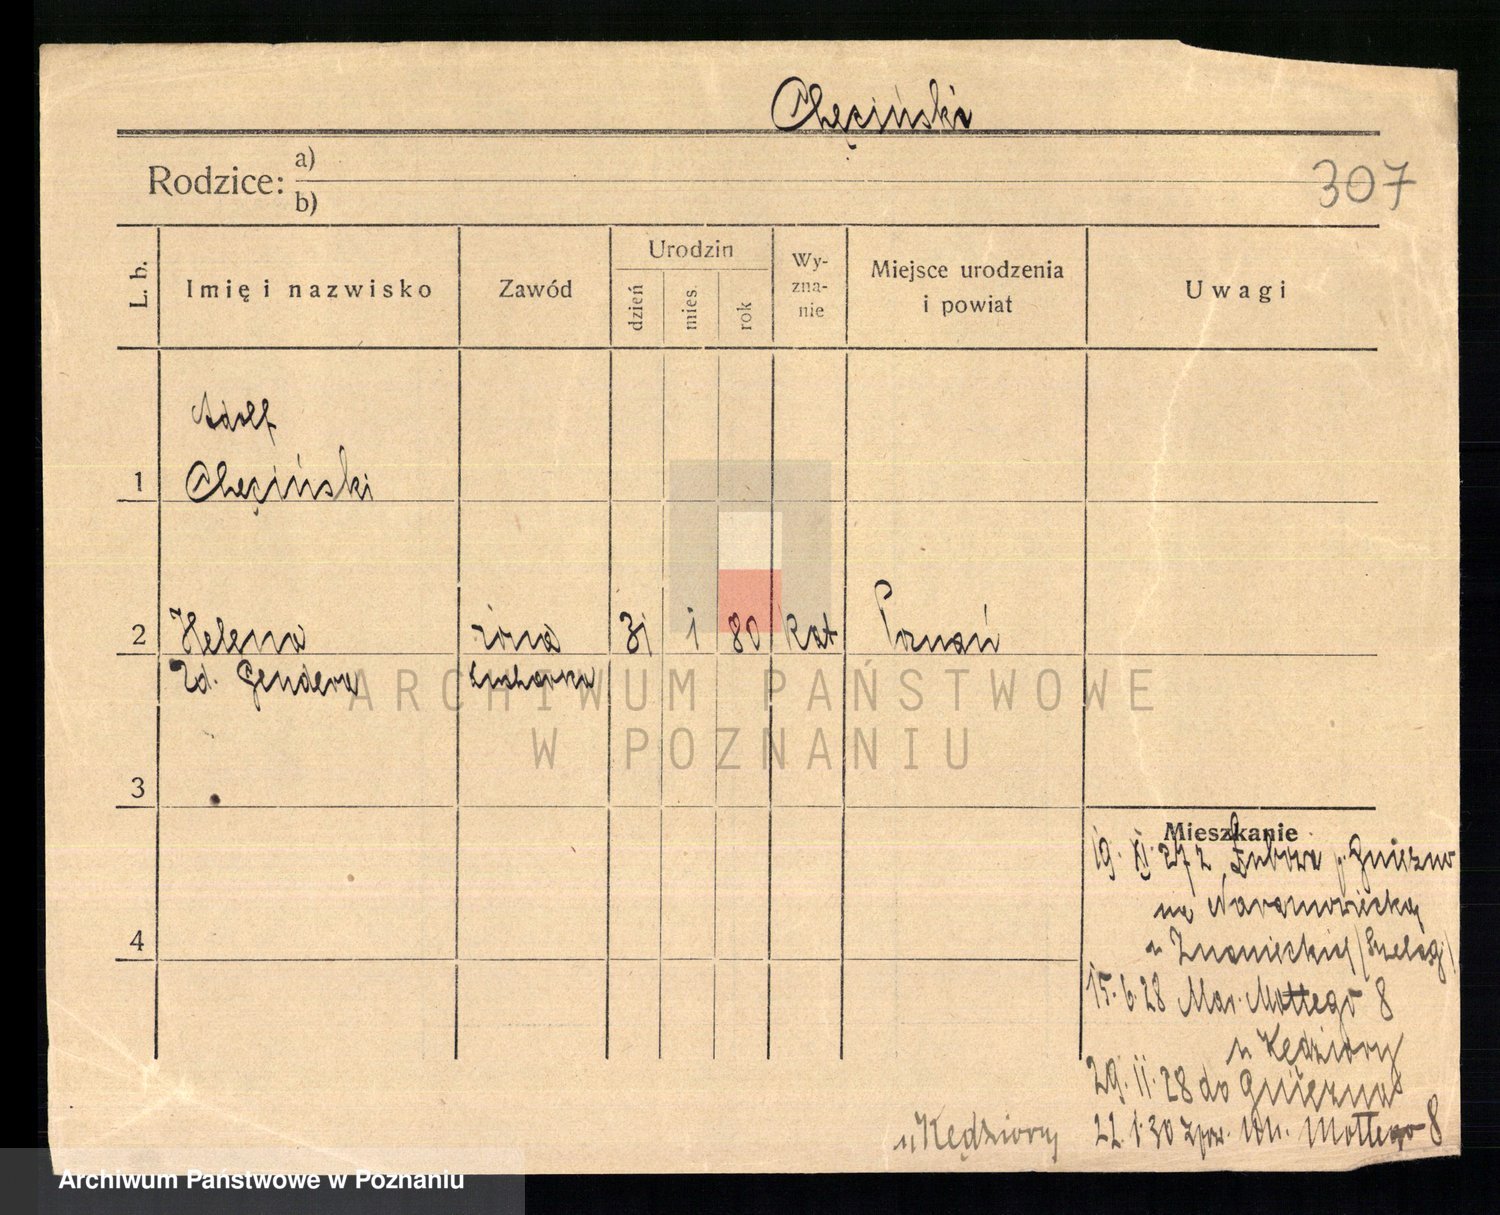 Chęciński
Rodzice: a)
b)
307
L. b.
Imię i nazwisko
Zawód
Urodzin
dzień
mies.
rok
Wy-
zna-
nie
Miejsce urodzenia
i powiat
Uwagi
Adolf
1 Chęciński
2 Helena żona 31 1 80 kat Poznań
zd. Gendera kucharka
ARCHIWUM PAŃSTWOWE
W POZNANIU
3
Mieszkanie
19. XI. 27 z p. Gniezno
na Naramowicką
u Znanieckiej (Szeląg)
4
15.6.28 Mar. Mottego 8
u Kędziory
29.11.28 do Gniezna
22.1.30 zpow. Mottego 8
u Kędziory
Archiwum Państwowe w Poznaniu